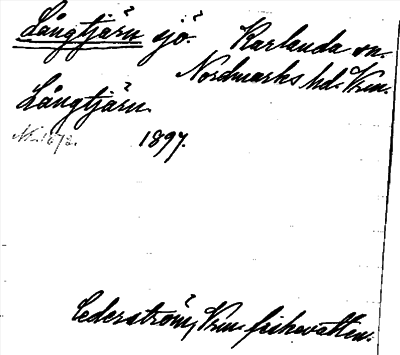 Långtjärn sjö. Karlanda sn.
Nordmarks hd. Vrm.
Långtjärn.
1897.
Cederström, Vrm. fiskevatten.